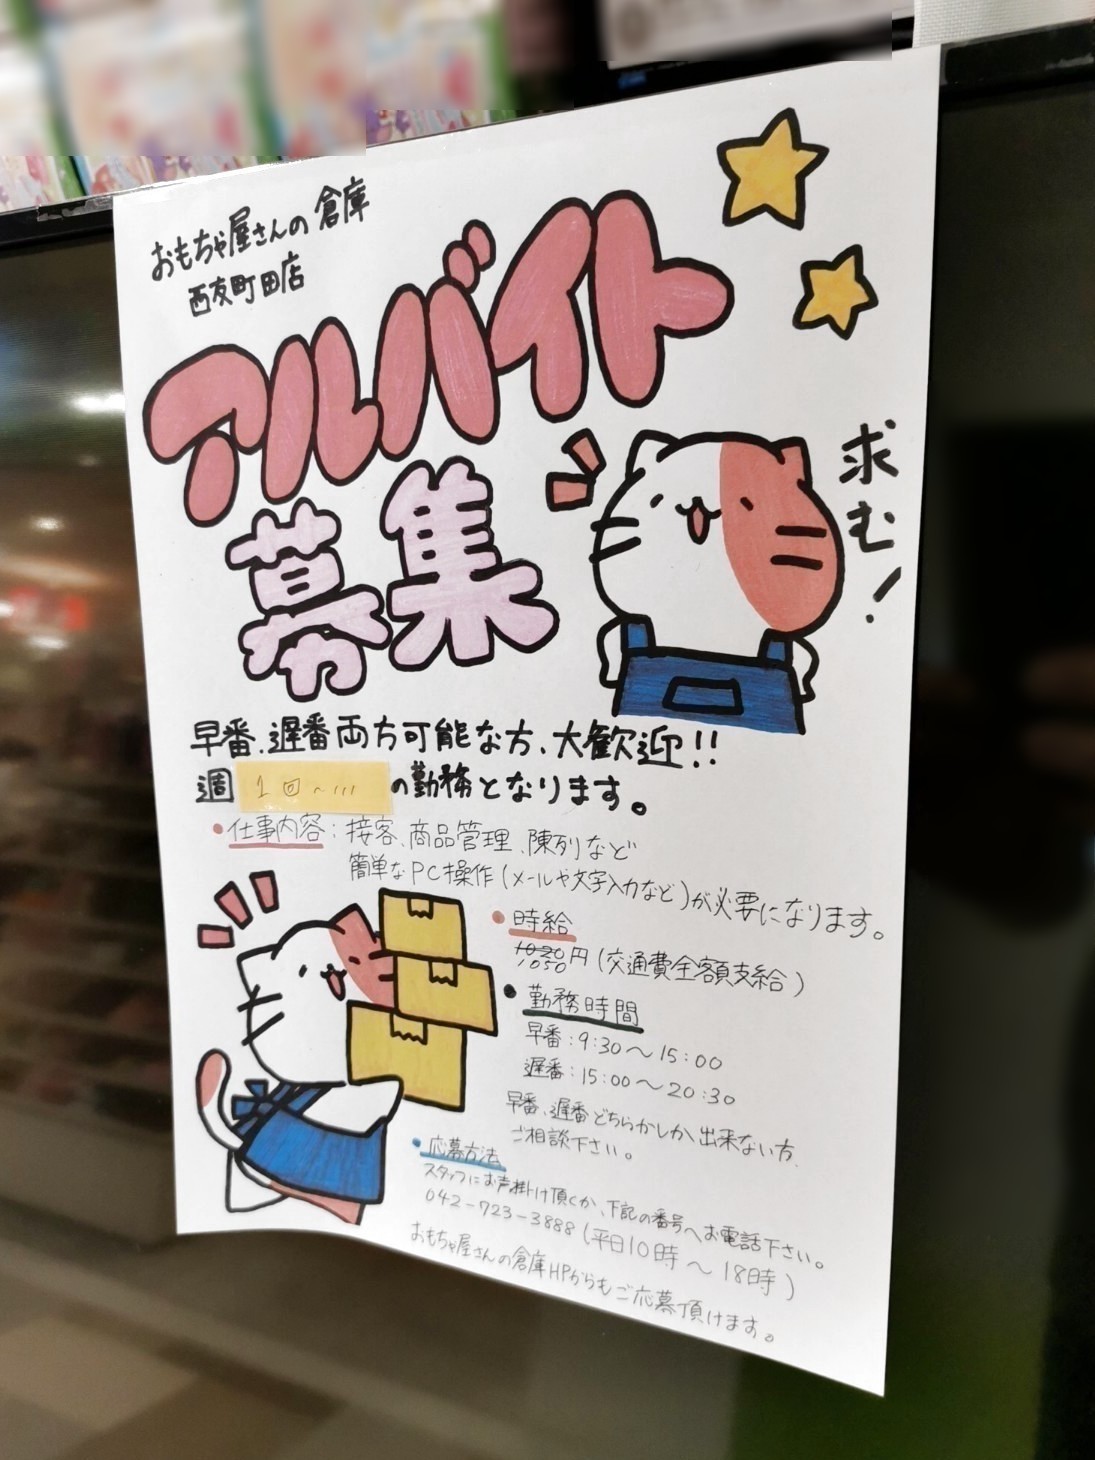 おもちゃ屋さんの倉庫
西友町田店
アルバイト
募集
求む!
早番、遅番両方可能な方、大歓迎!!
週1回~...の勤務となります。
・仕事内容:接客、商品管理、陳列など
簡単なPC操作(メールや文字入力など)が必要になります。
・時給
1050円(交通費全額支給)
・勤務時間
早番:9:30~15:00
遅番:15:00~20:30
早番、遅番どちらかしか出来ない方、
ご相談下さい。
・応募方法
スタッフにお声掛け頂くか、下記の番号へお電話下さい。
042-723-3888(平日10時~18時)
おもちゃ屋さんの倉庫HPからもご応募頂けます。